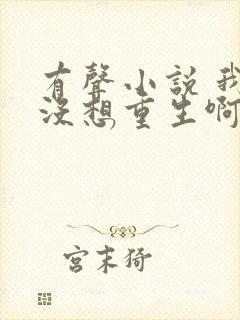 有聲小說 我
沒想重生啊
宮末猗